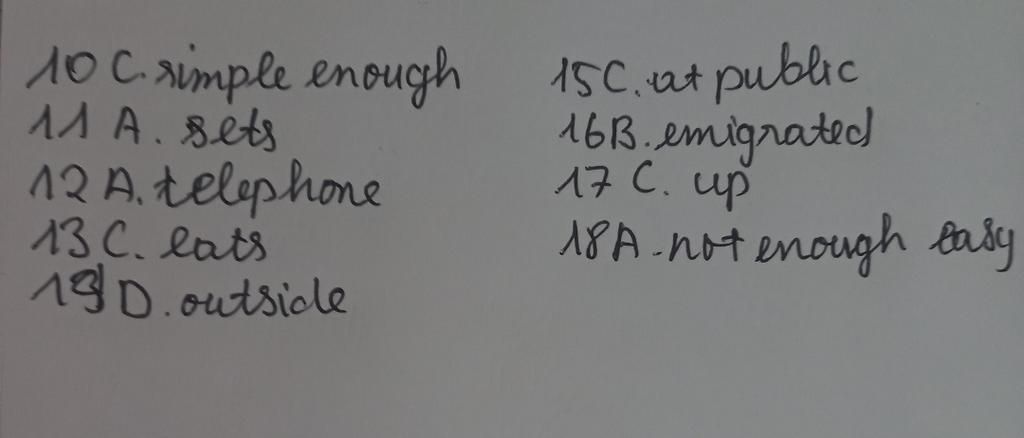 10 C. simple enough
11 A. sets
12 A. telephone
13 C. eats
D. outside
15 C. at public
16 B. emigrated
17 C. up
18 A. not enough easy